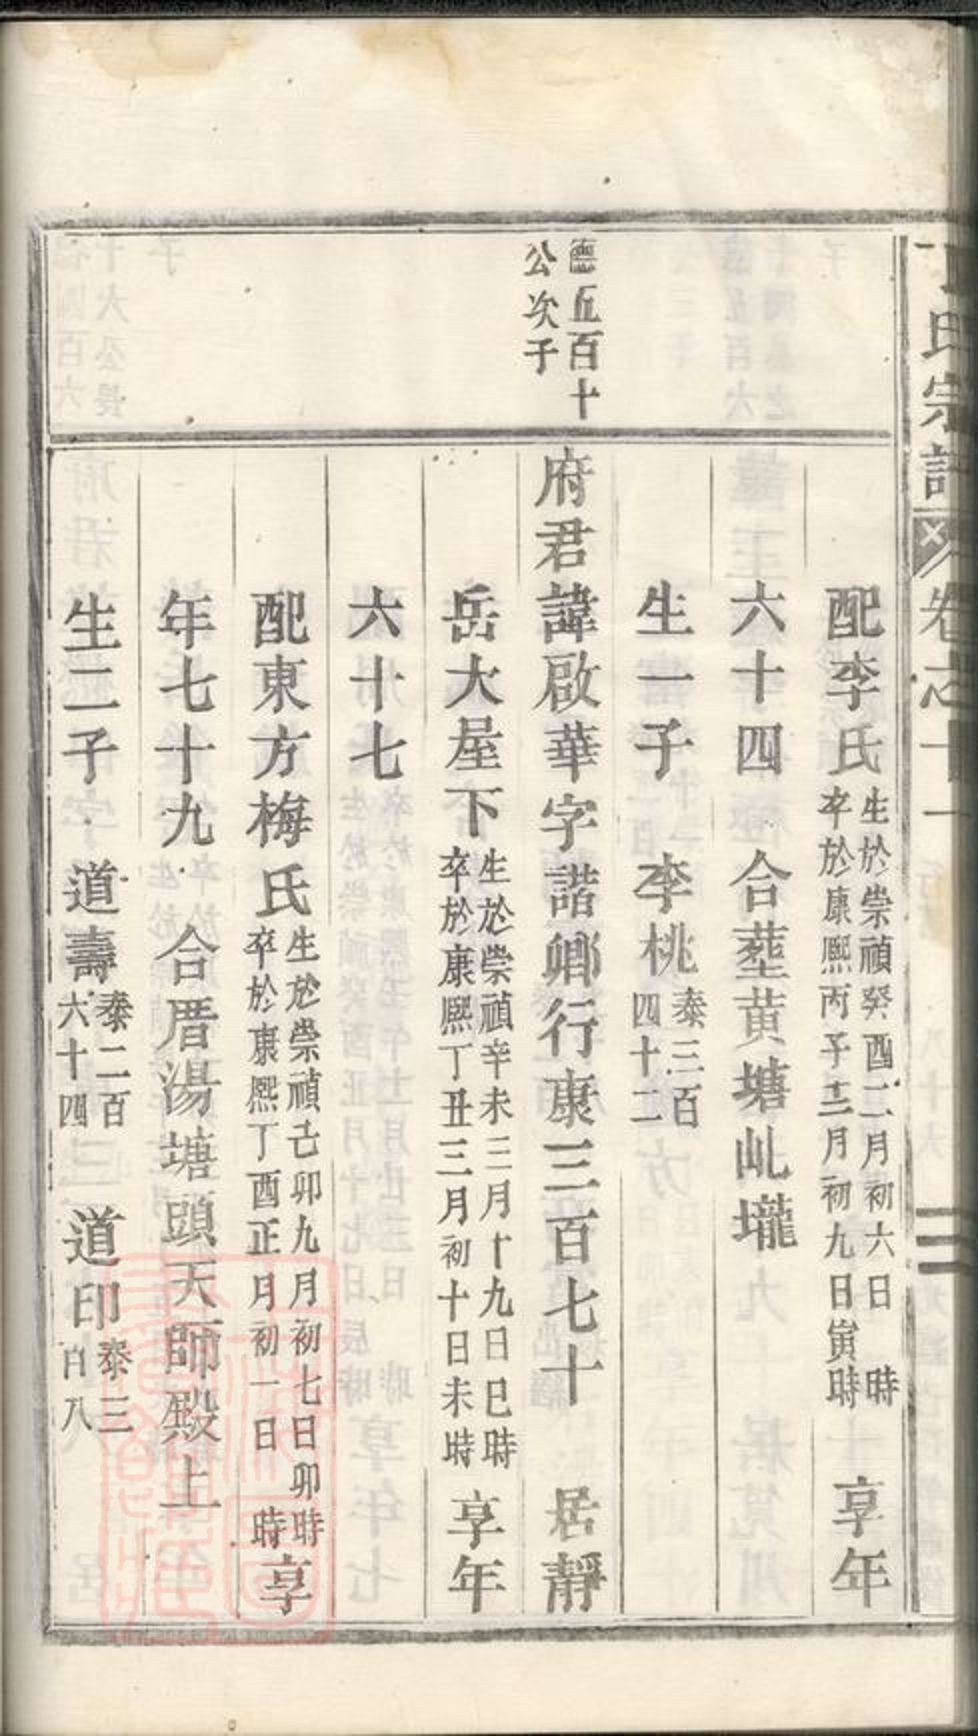 氏宗譜 卷之十一 二
配李氏 生於崇禎癸酉二月初六日 時 卒於康熙丙子十二月初九日寅時 享年
六十四 合塟黄塘乢壠
生一子 李桃 泰三百四十二
德五百十公次子
府君諱啟華字諧卿行康三百七十 居靜
岳大屋下 生於崇禎辛未三月十九日巳時 卒於康熙丁丑三月初十日未時 享年
六十七
配東方梅氏 生於崇禎己卯九月初七日卯時 卒於康熙丁酉正月初一日 時 享
年七十九 合厝湯塘頭天師殿上
生二子 道壽 泰二百六十四 道印 泰三百八